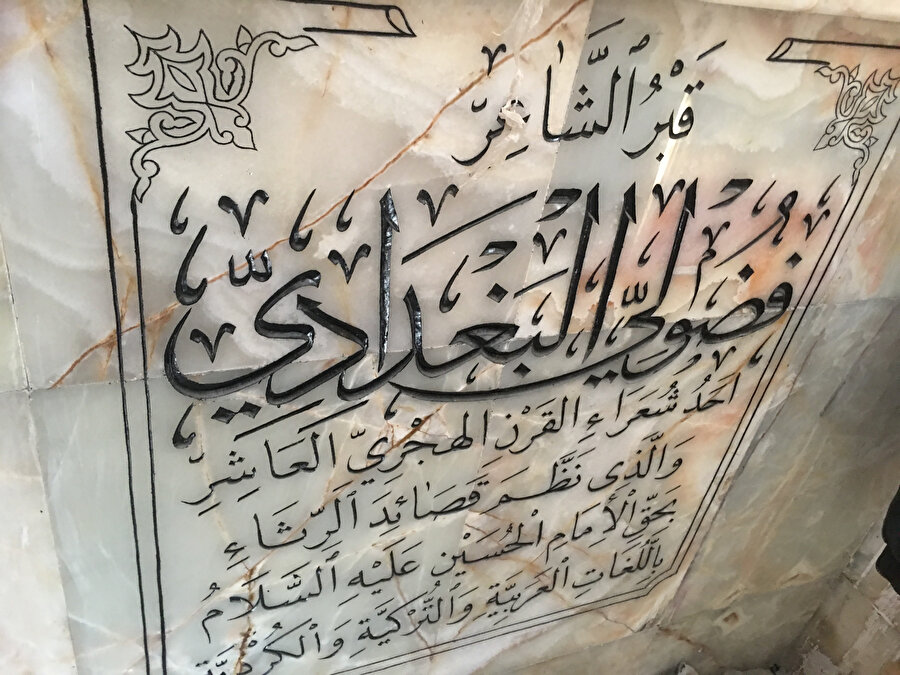 قَبْرُ ٱلشَّاعِرْ
فُضُولِيّ البَغْدَادِيّ
أحَدُ شُعَرَاءِ القَرْنِ الهِجْرِيّ العَاشِرِ
وَالَّذِي نَظَّمَ قَصَائِدَ ٱلرِّثَاءِ
بِحَقِّ الأمَامِ الْحُسَيْنِ عَلَيْهِ ٱلسَّلَامُ
بِٱللُّغَاتِ ٱلْعَرَبِيَّةِ وَٱلتُّرْكِيَّةِ وَٱلْكُرْدِيَّةِ